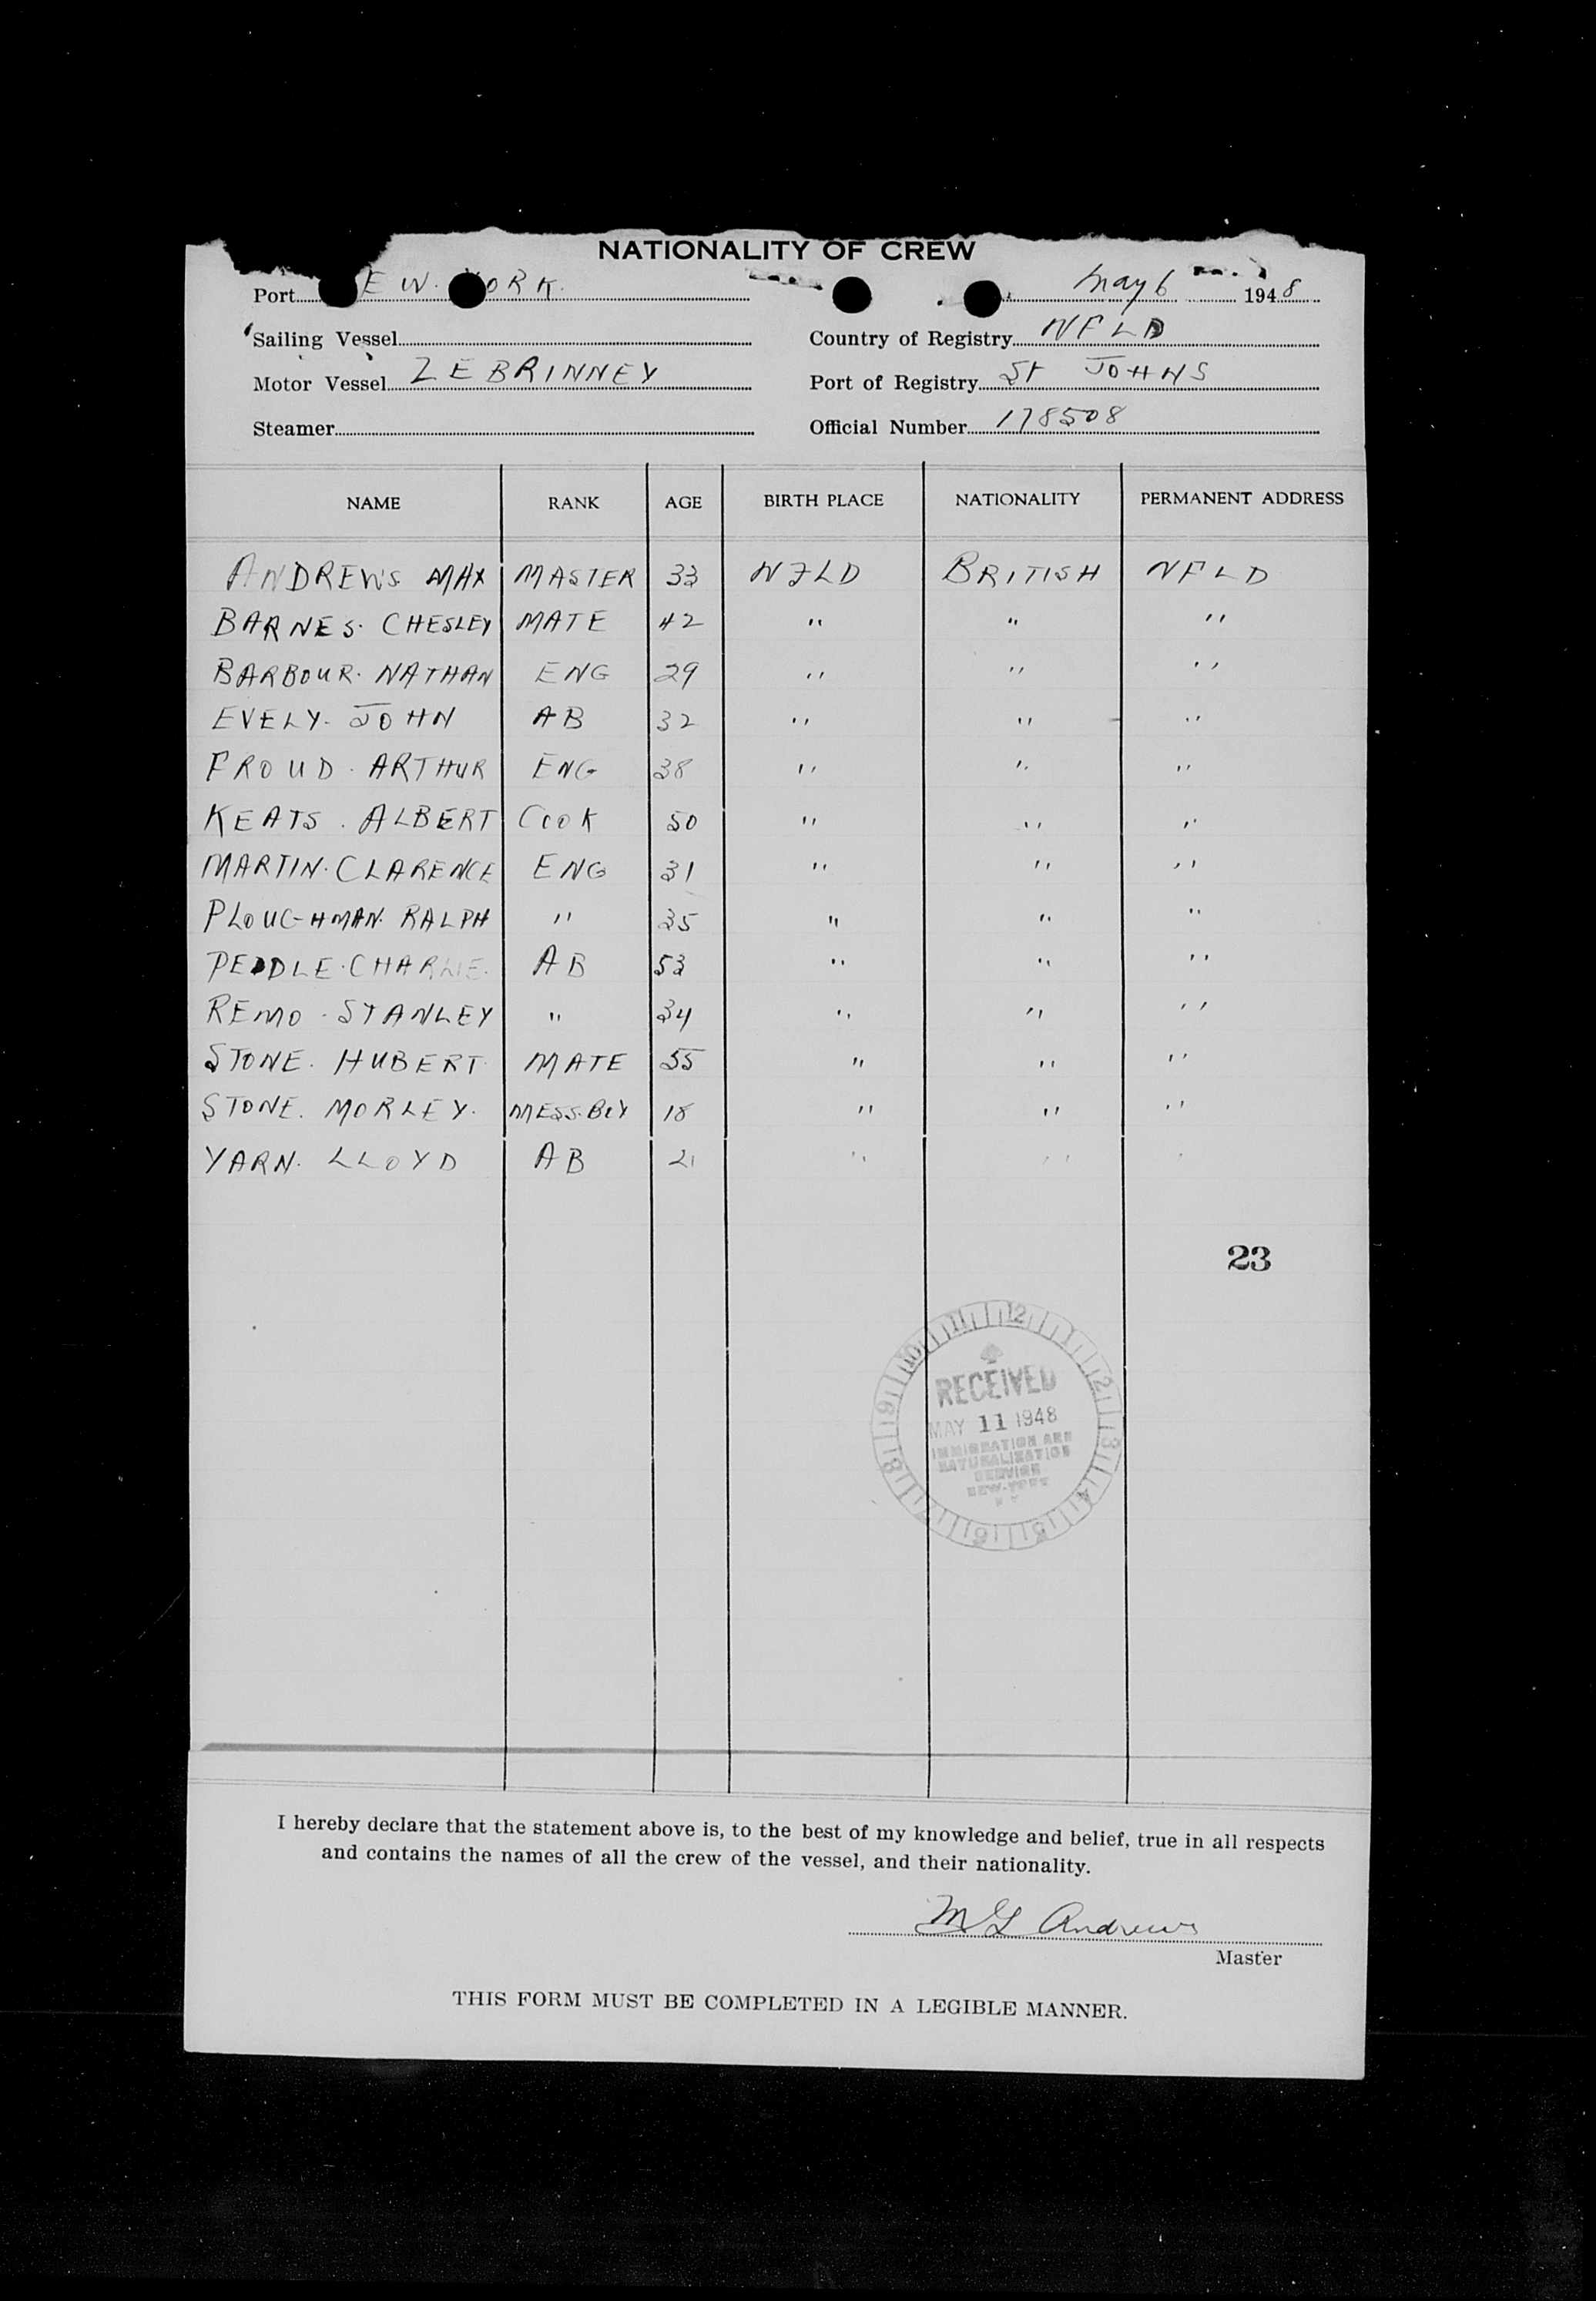 NATIONALITY OF CREW
Port EW. ORK. May 6 1948
Sailing Vessel Country of Registry NFLD
Motor Vessel ZEBRINNEY Port of Registry St JOHNS
Steamer Official Number 178508
NAME RANK AGE BIRTH PLACE NATIONALITY PERMANENT ADDRESS
ANDREWS MAX MASTER 33 NFLD BRITISH NFLD
BARNES. CHESLEY MATE 42 " " "
BARBOUR. NATHAN ENG 29 " " "
EVELY. JOHN AB 32 " " "
FROUD. ARTHUR ENG 38 " " "
KEATS. ALBERT COOK 50 " " "
MARTIN. CLARENCE ENG 31 " " "
PLOUGHMAN. RALPH " 35 " " "
PEDDLE. CHARLIE. AB 53 " " "
REMO. STANLEY " 34 " " "
STONE. HUBERT. MATE 55 " " "
STONE. MORLEY. MESS.BOY 18 " " "
YARN. LLOYD AB 21 " " "
23
12 1 2 3 4 5 6 7 8 9 10 11
RECEIVED
MAY 11 1948
IMMIGRATION AND
NATURALIZATION
SERVICE
NEW-YORK
N Y
I hereby declare that the statement above is, to the best of my knowledge and belief, true in all respects
and contains the names of all the crew of the vessel, and their nationality.
MG Andrews
Master
THIS FORM MUST BE COMPLETED IN A LEGIBLE MANNER.